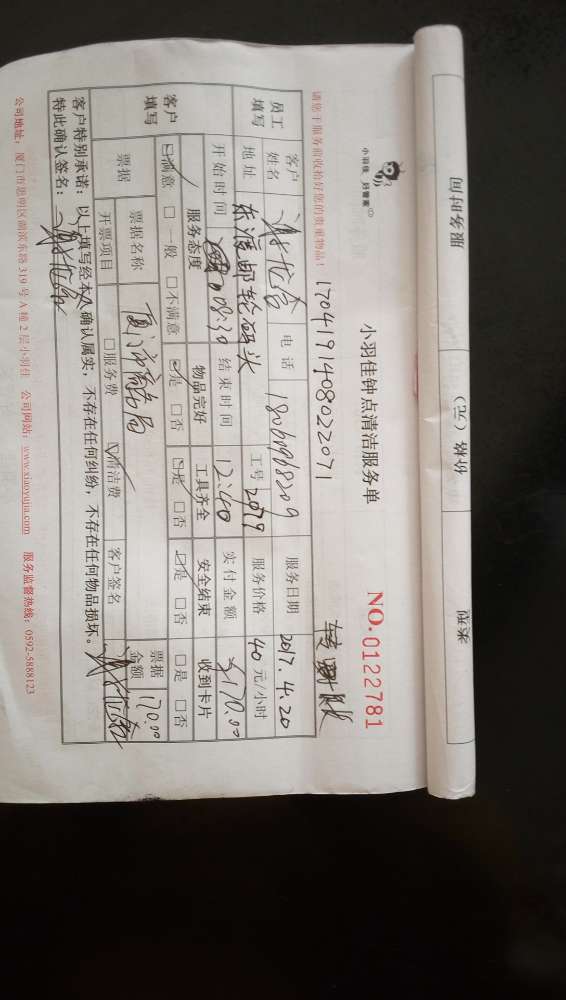 服务时间
价格（元）
类别
小羽佳 好管家
小羽佳钟点清洁服务单
NO. 0122781
请您于服务前收拾好您的贵重物品！
1704191408022071
员工填写
客户姓名
电话
18060968209
服务日期
2017.4.20
地址
东渡邮轮码头
工号
2079
服务价格
40 元/小时
开始时间
08:30
结束时间
12:40
实付金额
170.00
客户填写
服务态度
物品完好
工具齐全
安全结束
收到卡片
☑满意 □一般 □不满意
☑是 □否
☑是 □否
☑是 □否
□是 □否
票据
票据名称
票据金额
170.00
开票项目
□服务费
☑清洁费
客户签名
客户特别承诺：以上填写经本人确认属实，不存在任何纠纷，不存在任何物品损坏。
特此确认签名：
公司地址：厦门市思明区湖滨东路 319 号 A 幢 2 层小羽佳 公司网站：www.xiaoyujia.com 服务监督热线：0592-5888123